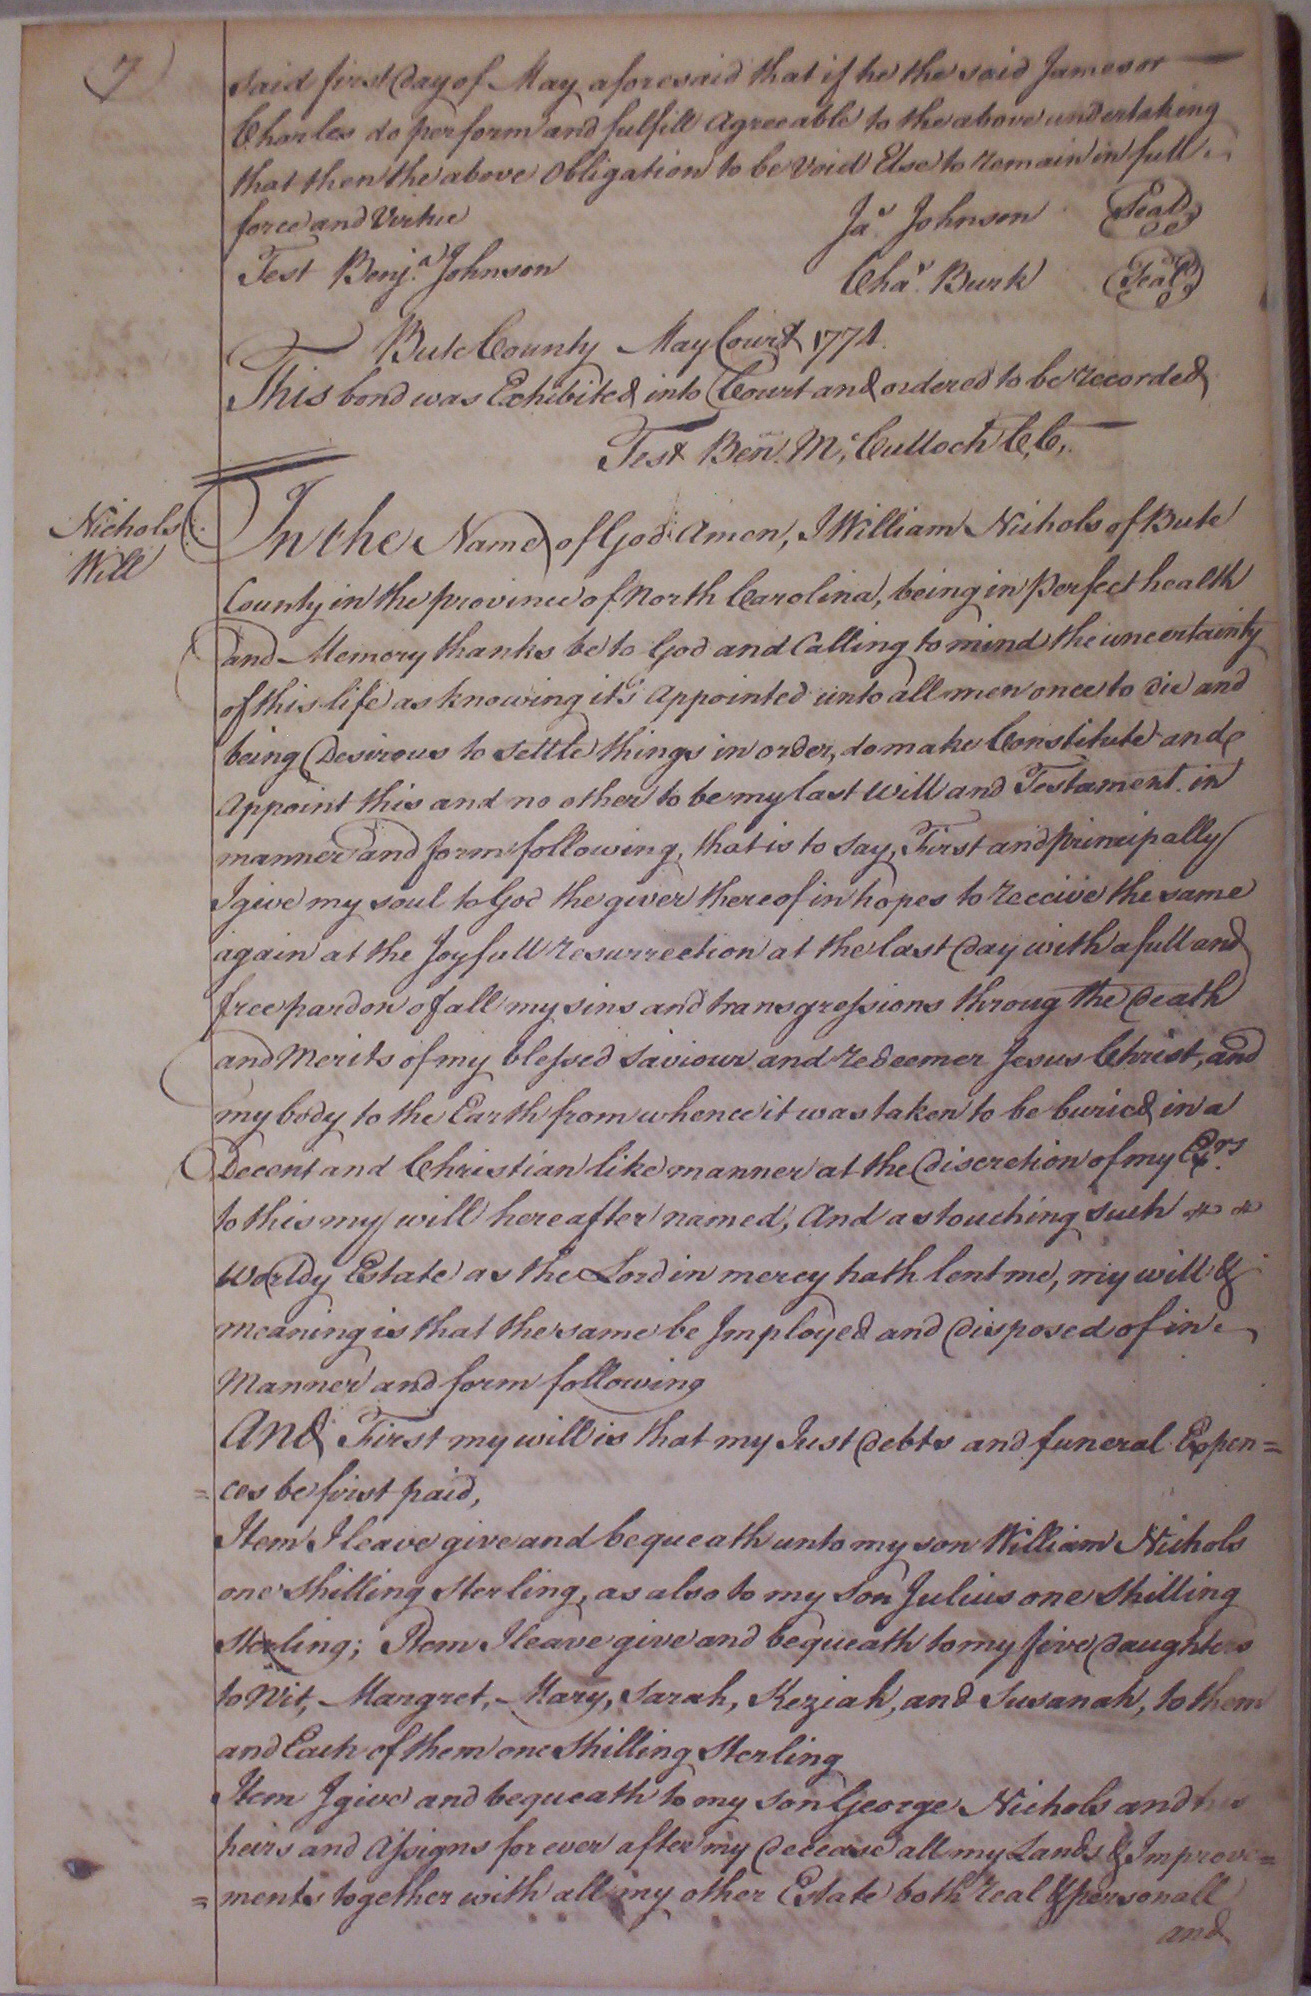 7
said first Day of May aforesaid that if he the said James or
Charles do perform and fulfill Agreeable to the above undertaking
that then the above Obligation to be Void Else to remain in full
force and Virtue Jas. Johnson Seal
Test Benja. Johnson Chas. Burk Seal
Bute County May Court 1774.
This bond was Exhibited into Court and ordered to be recorded
Test Ben. McCulloch C,C,.
Nichols
Will
In the Name of God Amen, I William Nichols of Bute
County in the province of North Carolina, being in perfect health
and Memory thanks be to God and Calling to mind the uncertainty
of this life as knowing its Appointed unto all men once to die and
being Desirous to settle things in order, do make Constitute and
Appoint this and no other to be my last Will and Testament in
manner and form following, that is to say, First and principally
I give my soul to God the giver thereof in hopes to receive the same
again at the Joyfull resurrection at the last Day with a full and
free pardon of all my sins and transgressions throug the Death
and Merits of my blessed Saviour and redeemer Jesus Christ, and
my body to the Earth from whence it was taken to be buried in a
Decent and Christian like manner at the Discretion of my Exrs.
to this my will hereafter named, And as touching such
Worldy Estate as the Lord in mercy hath lent me, my will &
meaning is that the same be Imployed and Disposed of in
Manner and form following
And First my will is that my Just Debts and funeral Expen=
=ces be first paid,
Item I leave give and bequeath unto my son William Nichols
one shilling sterling, as also to my Son Julius one shilling
sterling; Item I leave give and bequeath to my five Daughters
to Wit, Margret, Mary, Sarah, Keziah, and Susanah, to them
and Each of them one shilling sterling
Item I give and bequeath to my son George Nichols and his
heirs and Assigns for ever after my Decease all my Lands & Improve=
=ments together with all my other Estate both real & personall
and